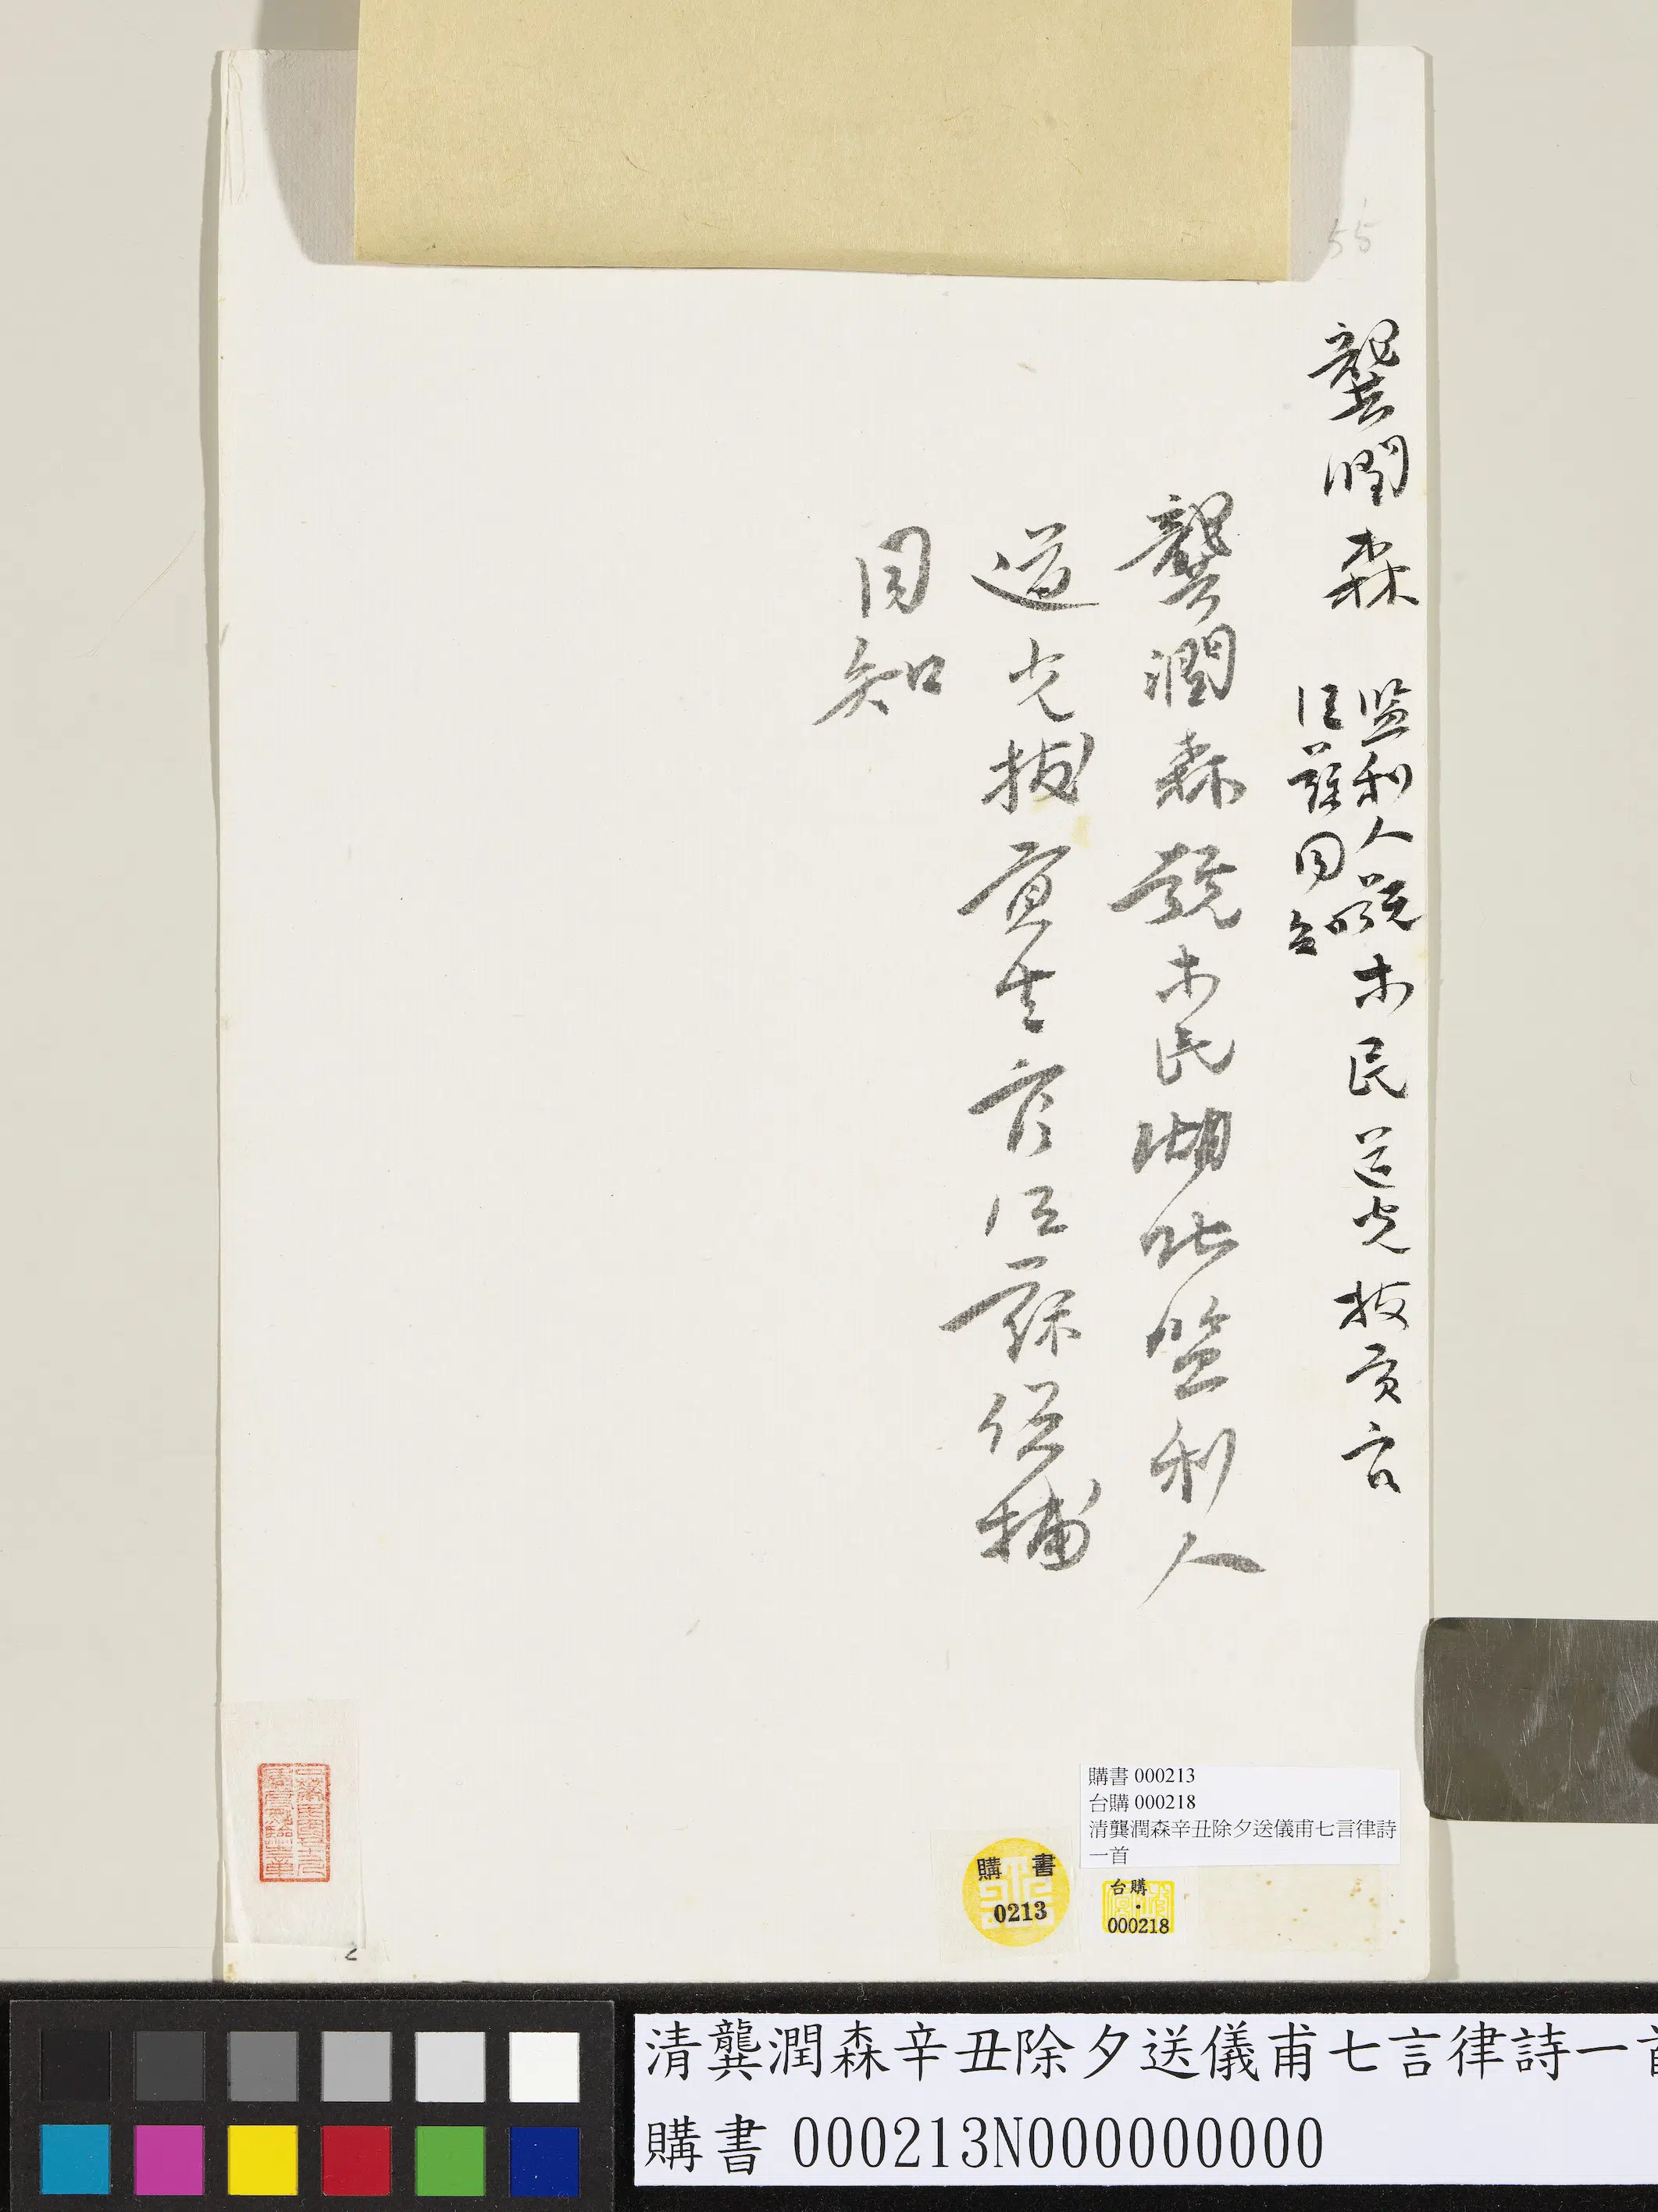 55
龔潤森
監利人號木民道光拔貢官
江蘇同知
龔潤森號木民湖北監利人
道光拔貢生官江蘇候補
同知
購書 000213
台購 000218
清龔潤森辛丑除夕送儀甫七言律詩
一首
購 書
0213
台購
000218
2
清龔潤森辛丑除夕送儀甫七言律詩一首
購書 000213N000000000